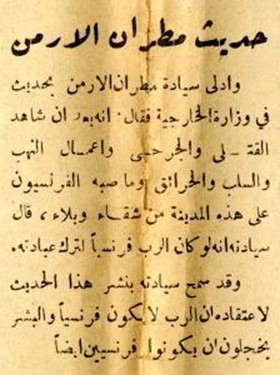 حديث مطران الارمن
وادلى سيادة مطران الارمن بحديث
في وزارة الخارجية فقال: انه بعد ان شاهد
القتـلى والجرحى واعمـال النهب
والسلب والحرائق وما صبه الفرنسيون
على هذه المدينة من شقـاء وبلاء، قال
سيادته انه لو كان الرب فرنسياً لترك عبادته.
وقد سمح سيادته بنشر هذا الحديث
لاعتقاده ان الرب لا يكون فرنسياً والبشر
يخجلون ان يكونوا فرنسيين ايضاً